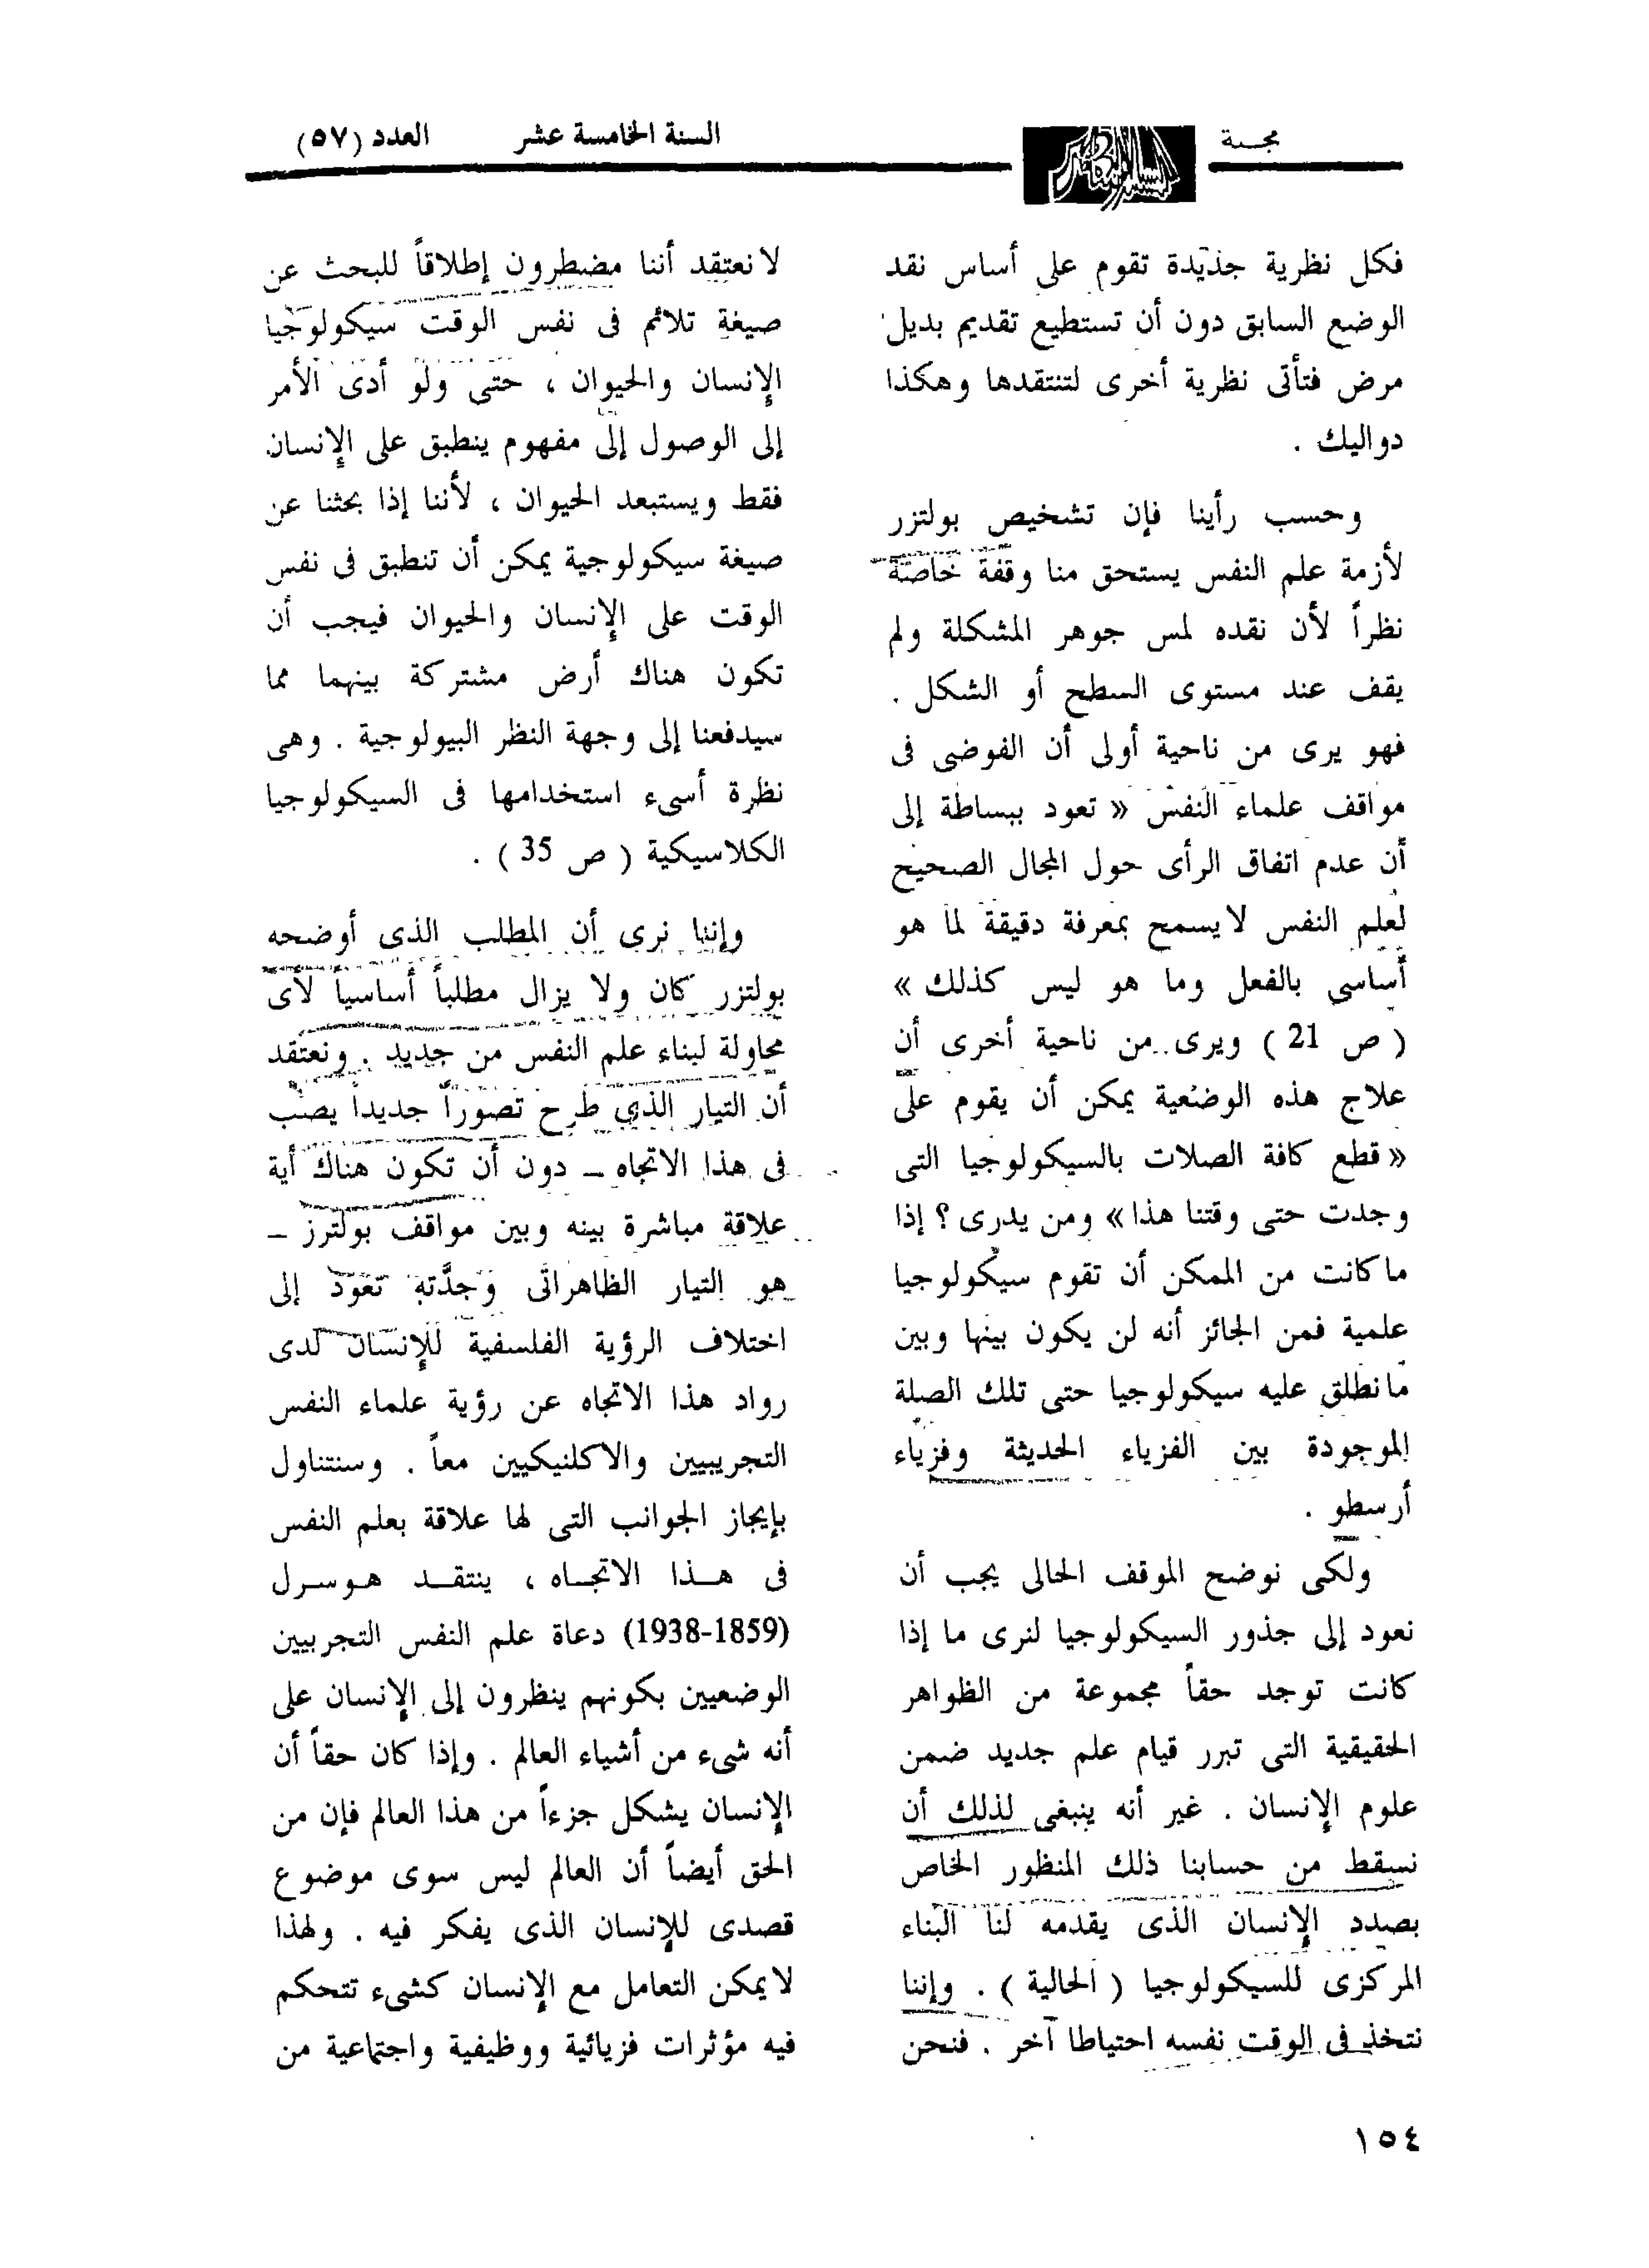 مجلة
المسلم المعاصر
السنة الخامسة عشر
العدد (٥٧)
فكل نظرية جديدة تقوم على أساس نقد
الوضع السابق دون أن تستطيع تقديم بديل
مرض فتأتى نظرية أخرى لتنتقدها وهكذا
دواليك .
وحسب رأينا فإن تشخيص بولتزر
لأزمة علم النفس يستحق منا وقفة خاصة
نظراً لأن نقده لمس جوهر المشكلة ولم
يقف عند مستوى السطح أو الشكل .
فهو يرى من ناحية أولى أن الفوضى فى
مواقف علماء النفس « تعود ببساطة إلى
أن عدم اتفاق الرأى حول المجال الصحيح
لعلم النفس لايسمح بمعرفة دقيقة لما هو
أساسى بالفعل وما هو ليس كذلك »
( ص 21 ) ويرى من ناحية أخرى أن
علاج هذه الوضعية يمكن أن يقوم على
« قطع كافة الصلات بالسيكولوجيا التى
وجدت حتى وقتنا هذا » ومن يدرى ؟ إذا
ماكانت من الممكن أن تقوم سيكولوجيا
علمية فمن الجائز أنه لن يكون بينها وبين
مانطلق عليه سيكولوجيا حتى تلك الصلة
الموجودة بين الفزياء الحديثة وفزياء
أرسطو .
ولكى نوضح الموقف الحالى يجب أن
نعود إلى جذور السيكولوجيا لنرى ما إذا
كانت توجد حقاً مجموعة من الظواهر
الحقيقية التى تبرر قيام علم جديد ضمن
علوم الإنسان . غير أنه ينبغى لذلك أن
نسقط من حسابنا ذلك المنظور الخاص
بصدد الإنسان الذى يقدمه لنا البناء
المركزى للسيكولوجيا ( الحالية ) . وإننا
نتخذ فى الوقت نفسه احتياطا آخر . فنحن
لانعتقد أننا مضطرون إطلاقاً للبحث عن
صيغة تلائم فى نفس الوقت سيكولوجيا
الإنسان والحيوان ، حتى ولو أدى الأمر
إلى الوصول إلى مفهوم ينطبق على الإنسان
فقط ويستبعد الحيوان ، لأننا إذا بحثنا عن
صيغة سيكولوجية يمكن أن تنطبق فى نفس
الوقت على الإنسان والحيوان فيجب أن
تكون هناك أرض مشتركة بينهما مما
سيدفعنا إلى وجهة النظر البيولوجية . وهى
نظرة أسىء استخدامها فى السيكولوجيا
الكلاسيكية ( ص 35 ) .
وإننا نرى أن المطلب الذى أوضحه
بولتزر كان ولا يزال مطلباً أساسياً لأى
محاولة لبناء علم النفس من جديد . ونعتقد
أن التيار الذى طرح تصوراً جديداً يصب
فى هذا الاتجاه ــ دون أن تكون هناك أية
علاقة مباشرة بينه وبين مواقف بولترز ــ
هو التيار الظاهراتى وجدَّته تعود إلى
اختلاف الرؤية الفلسفية للإنسان لدى
رواد هذا الاتجاه عن رؤية علماء النفس
التجريبيين والاكلنيكيين معاً . وسنتناول
بإيجاز الجوانب التى لها علاقة بعلم النفس
فى هــذا الاتجــاه ، ينتقــد هـوسـرل
(1859-1938) دعاة علم النفس التجربيين
الوضعيين بكونهم ينظرون إلى الإنسان على
أنه شىء من أشياء العالم . وإذا كان حقاً أن
الإنسان يشكل جزءاً من هذا العالم فإن من
الحق أيضاً أن العالم ليس سوى موضوع
قصدى للإنسان الذى يفكر فيه . ولهذا
لايمكن التعامل مع الإنسان كشىء تتحكم
فيه مؤثرات فزيائية ووظيفية واجتماعية من
١٥٤